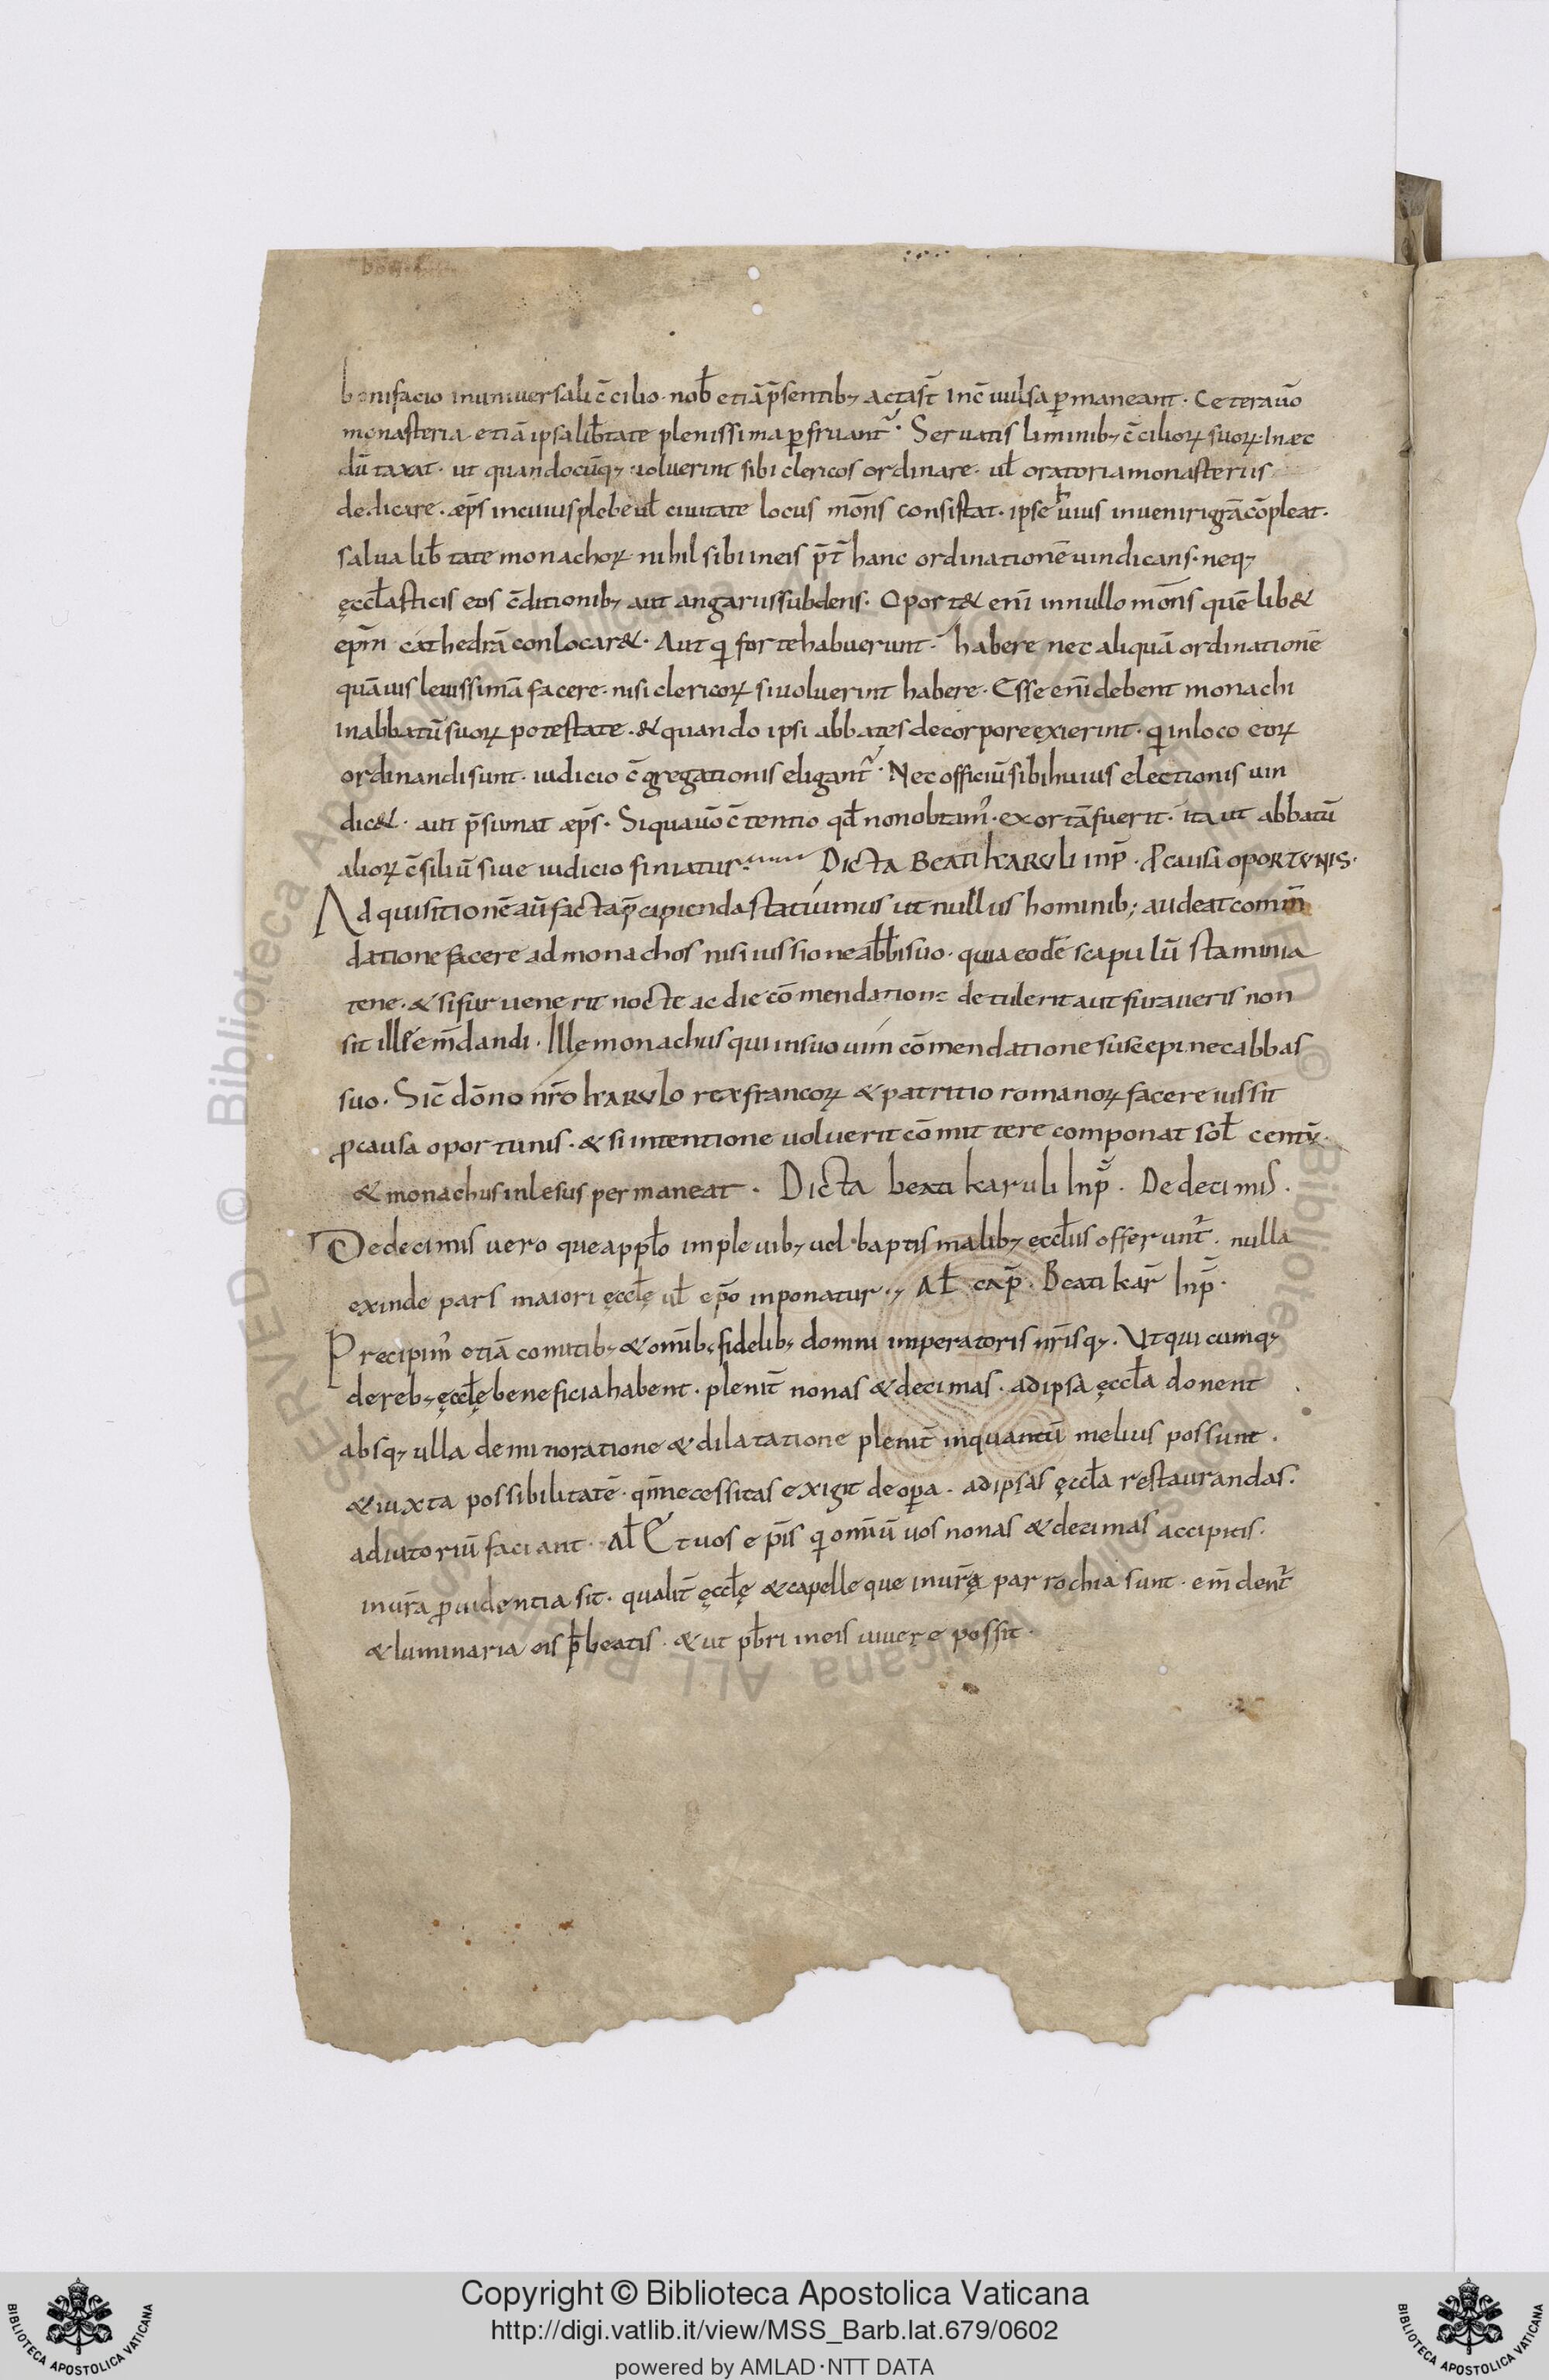 bonifacio inuniversali c̄cilio · nob̄ etiā p̄sentib; acta st̄ Inc̄vulsa ꝑmaneant · Cetera uō
monasteria etiā ipsa lib̄tate plenissima ꝑfruant᷑ · Servatis liminib; c̄cilioꝝ suoꝝ · In æc
dū taxat · ut quandocūq; voluerint sibi clericos ordinare · ul̄ oratoria monasteriis
dedicare · æp̄s incuius plebe ul̄ civitate locus mōns consistat · ipse uius inveniri gr̄ā cōpleat ·
salva lib̄tate monachoꝝ nihil sibi ineis p̄t̄ hanc ordinationē vindicans · neq;
ęccl̄asticis eos c̄ditionib; aut angariis subdens · Oport& eni̅ innullo mōns quē lib&
ep̄m cathedrā conlocar& · Aut qi forte habuerunt · habere nec aliquā ordinationē
quāvis levissimā facere · nisi clericoꝝ si voluerint habere · Esse eni̅ debent monachi
In abbatū suoꝝ potestate · & quando ipsi abbates decorpore exierint · qi inloco eoꝝ
ordinandi sunt · iudicio c̄gregationis eligant᷑ · Nec officiū sibi huius electionis vin
dic& · aut p̄sumat æp̄s · Siqua uō c̄tentio qd̄ non obtam᷒ · exorta fuerit · ita ut abbatū
alioꝝ c̄siliū sive iudicio finiatur · Dicta Beati karuli inp̄ · ꝓ causa oportunis ·
Adquisitionē aū facta p̄cipienda statuimus ut nullus hominib; audeat com̄m̄
datione facere ad monachos nisi iussione abb̄i suo · quia eodē scapulū staminia
tene · & si fur venerit nocte ac die cōmendatione detulerit aut furaveris non
sit ille em̄dandi · Ille monachus qui insuo vim cōmendatione suscepi nec abbas
suo · Sic̄ dōno nr̄o karulo rex francoꝝ & patritio romanoꝝ facere iussit
ꝓ causa oportunis · & si intentione voluerit cōmittere componat sol̄ centū ·
& monachus inlesus permaneat · Dicta beati karuli Inp̄ · De decimis ·
De decimis vero que a ppl̄o imple uib; vel baptismalib; ęccl̄iis offerunt᷑ · nulla
exinde pars maiori ęccl̄ę ul̄ ep̄o inponatur ·; Al̄ cap̄ · Beati kar̄ Inp̄ ·
Precipim᷒ etiā comitib; & omīb; fidelib; domni imperatoris nr̄isq; · Ut qui cumq;
de reb; ęccl̄ę beneficia habent · plenit̄ nonas & decimas · ad ipsā ęccl̄a donent
absq; ulla deminoratione & dilatatione plenit̄ inquantū melius possunt ·
& iuxta possibilitatē · qn̄ necessitas exigit de oꝑa · ad ipsas ęccl̄a restaurandas ·
adiutoriū faciant · Al̄ Et vos ep̄is qi omīū vos nonas & decimas accipitis ·
in ur̄ā ꝓvidentia sit · qualit̄ ęccl̄ę & capelle que in ur̄ā parrochia sunt · em̄dent᷑
& luminaria eis p̄beatis · & ut pb̄ri ineis vivere possit ·
Copyright © Biblioteca Apostolica Vaticana
http://digi.vatlib.it/view/MSS_Barb.lat.679/0602
powered by AMLAD·NTT DATA
BIBLIOTECA APOSTOLICA VATICANA
BIBLIOTECA APOSTOLICA VATICANA